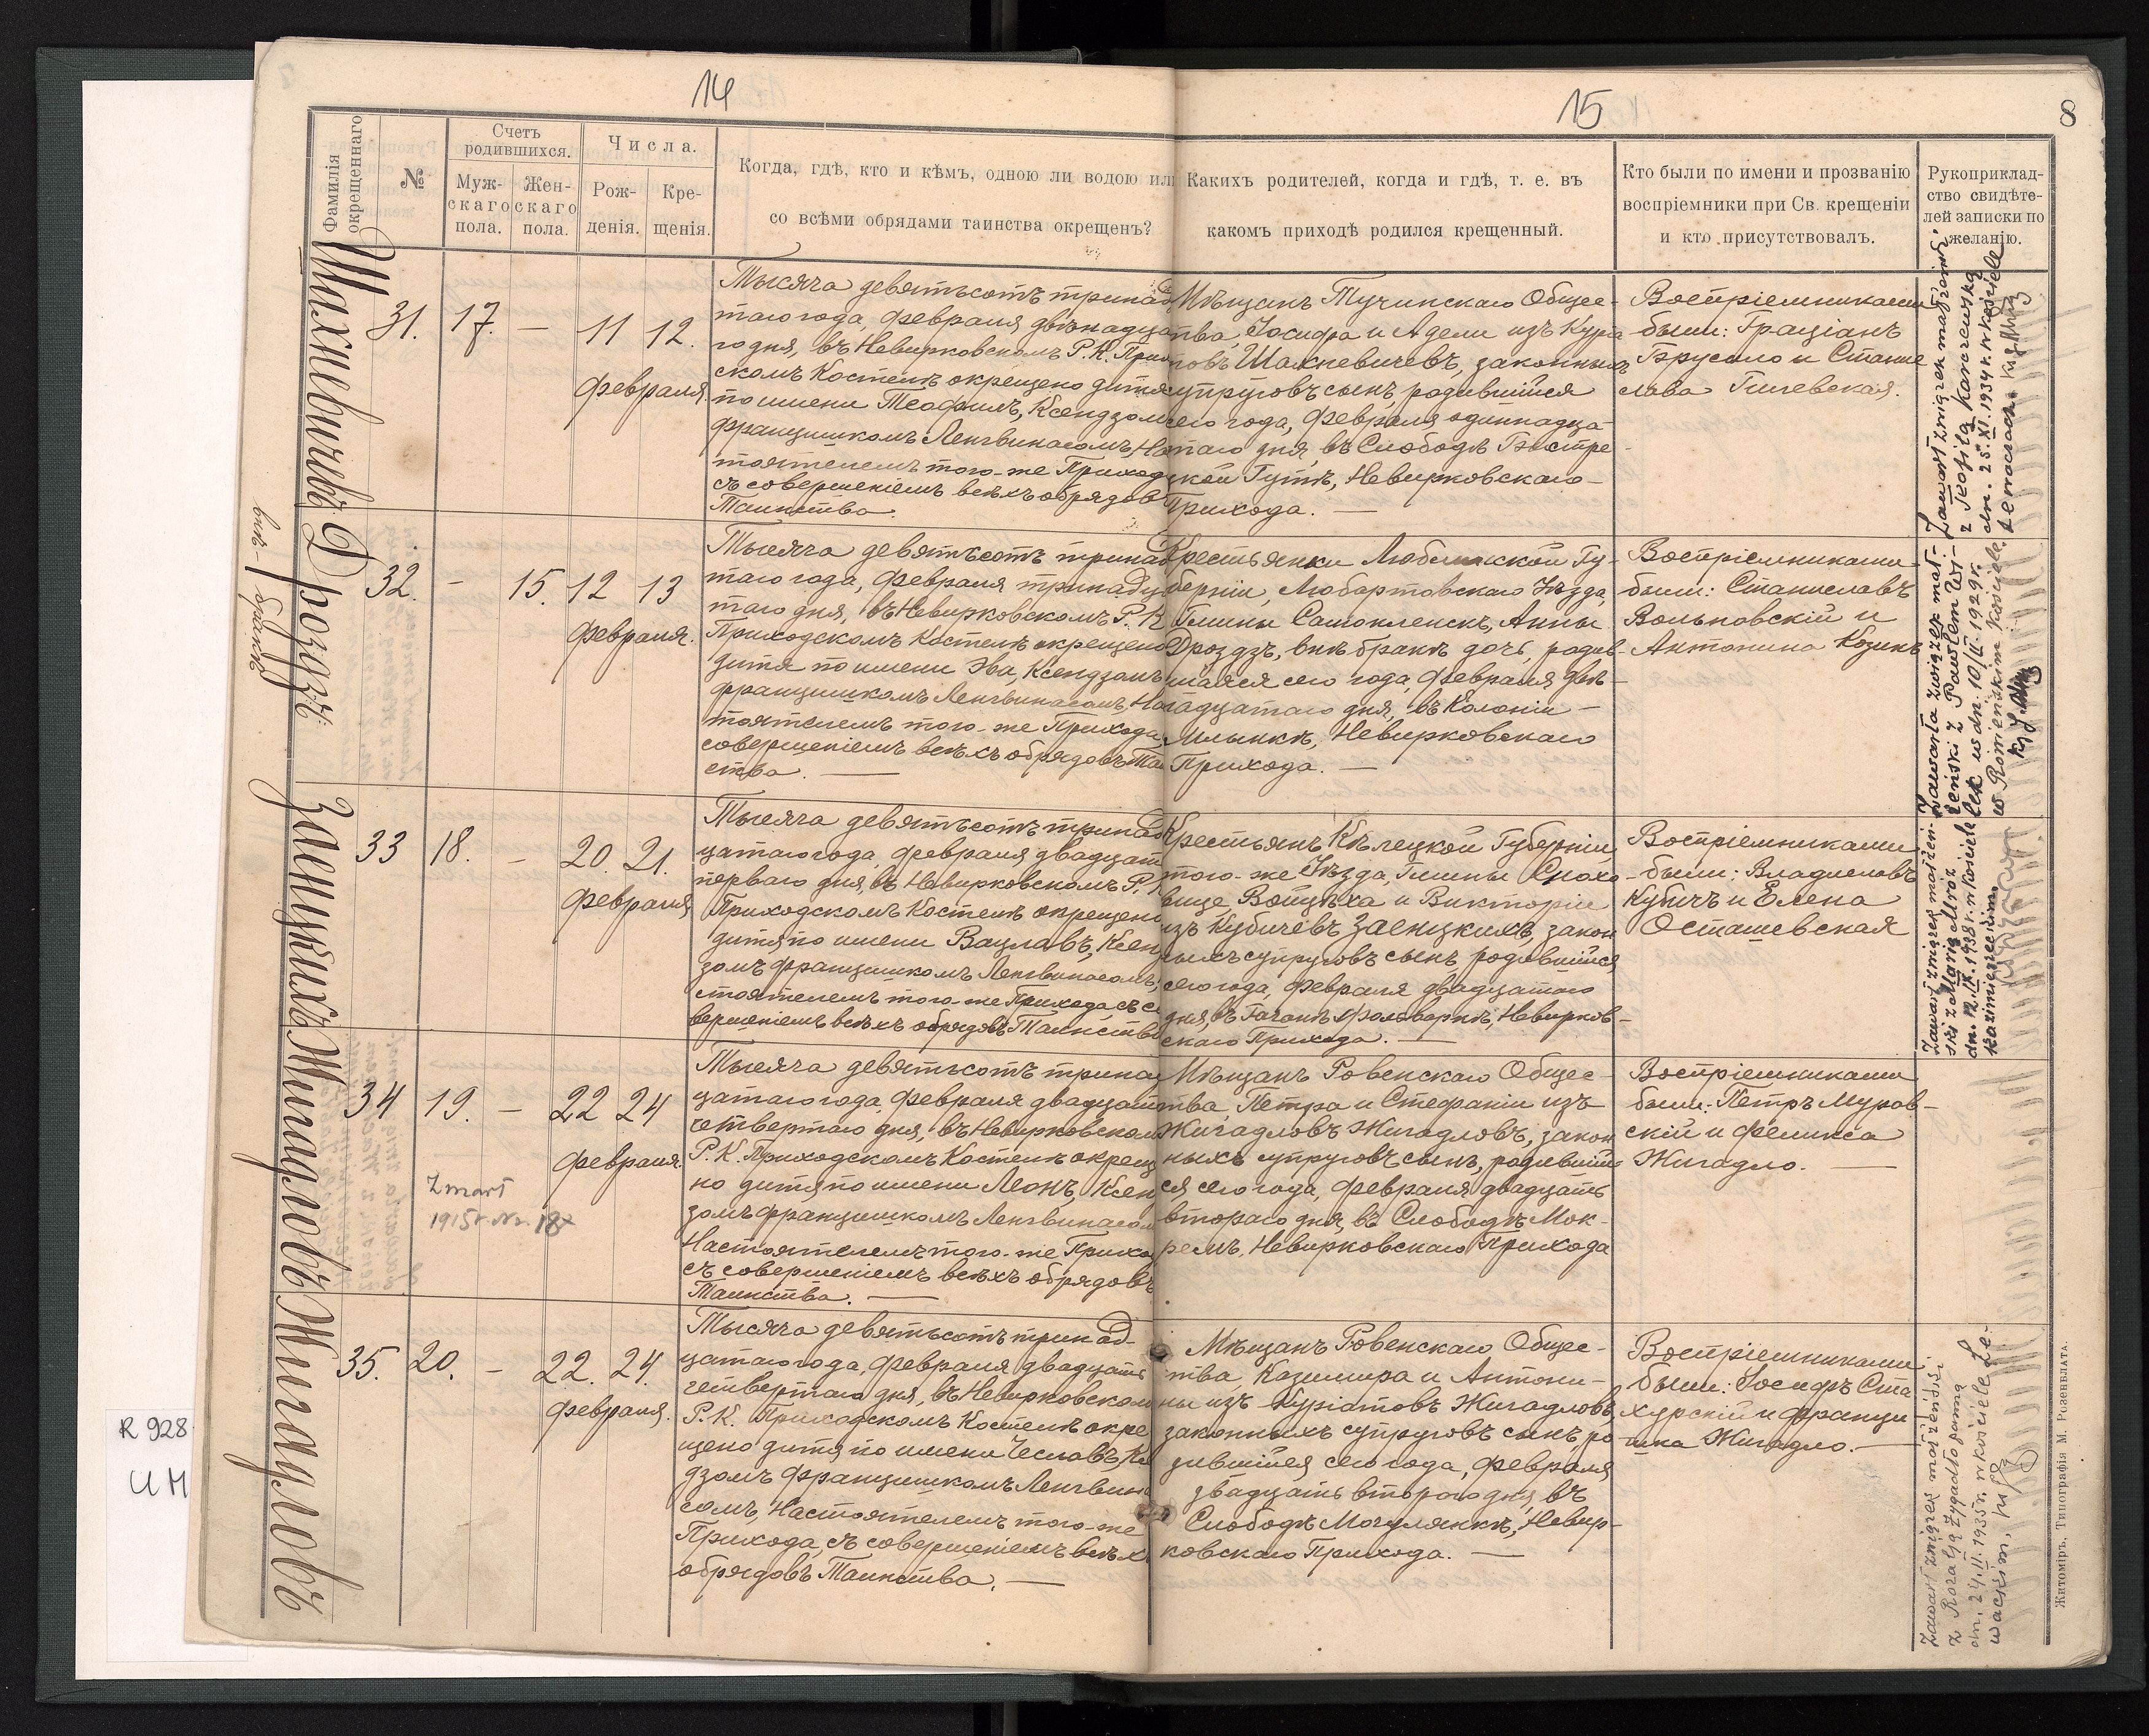 14
15
8
Фамилія окрещеннаго
№
Счетъ родившихся.
Муж- скаго пола.
Жен- скаго пола.
Числа.
Рож- денія.
Кре- щенія.
Когда, гдѣ, кто и кѣмъ, одною ли водою или
со всѣми обрядами таинства окрещенъ?
Какихъ родителей, когда и гдѣ, т. е. въ
какомъ приходѣ родился крещенный.
Кто были по имени и прозванію
воспріемники при Св. крещеніи
и кто присутствовалъ.
Рукоприклад-
ство свидѣте-
лей записки по
желанію.
Шахневичевъ
31. 17. — 11 12.
февраля.
Тысяча девятьсотъ тринад
таго года, февраля двѣнадца
го дня, въ Невирковскомъ Р. К. Прих
скомъ Костелѣ окрещено дитя
по имени Теофилъ, Ксендзомъ
Францишкомъ Ленгвинасомъ, На
тоятелемъ того-же Приход
съ совершеніемъ всѣхъ обрядов
Таинства.
Мѣщанъ Тучинскаго Общес-
тва, Іосифа и Адели изъ Курга
новъ Шахневичевъ, законных
супруговъ сынъ, родившійся
сего года, февраля одиннадца-
таго дня, въ Слободѣ Быстре-
цкой Гутѣ, Невирковскаго
Прихода. —
Воспріемниками
были: Граціанъ
Брусило и Станис
лава Гилевская.
Zawarł związek małżeński
z Teofilą Karczewską
dn. 25.XI.1934 r. w kościele
внѣ- брачнѣ
Дроздзъ
32. — 15. 12 13
февраля.
Тысяча девятьсотъ тринад
таго года, февраля тринадца
таго дня, въ Невирковскомъ Р. К
Приходскомъ Костелѣ окрещено
дитя по имени Эва, Ксендзомъ
Францишкомъ Ленгвинасомъ, Нас
тоятелемъ того-же Прихода,
совершеніемъ всѣхъ обрядовъ Та
ства. —
Крестьянки Люблинской Гу-
берніи, Любартовскаго Уѣзда,
Гмины Самокленскъ, Анны
Дроздзъ, внѣ бракѣ дочь, родив-
шаяся сего года, февраля двѣ-
надцатаго дня, въ Колоніи
Млынкѣ, Невирковскаго
Прихода. —
Воспріемниками
были: Станиславъ
Вольновскій и
Антонина Козинъ
Zawarła związek mał-
żeński z Pawłem Wł-
kiem w dn. 10/II. 1929 r.
w Rómieńskim Kościele.
Заенцкихъ
33 18. — 20. 21.
февраля
Тысяча девятьсотъ тринад
цатаго года, февраля двадцать
перваго дня, въ Невирковскомъ Р. К
Приходскомъ Костелѣ окрещено
дитя по имени Вацлавъ, Ксен
зомъ Францишкомъ Ленгвинасомъ,
стоятелемъ того-же Прихода, съ со
вершеніемъ всѣхъ обрядовъ Таинства
Крестьянъ Кѣлецкой Губерніи,
того-же Уѣзда, Гмины Снохо-
вице, Войцѣха и Викторіи
изъ Кубичевъ Заенцкихъ, закон
ныхъ супруговъ сынъ, родившійся
сего года, февраля двадцатаго
дня, въ Гачанѣ Фольваркѣ, Невирков-
скаго Прихода. —
Воспріемниками
были: Владиславъ
Кубичъ и Елена
Осташевская
Zawarł związek małżeń-
ski z Marią Mróz
dn. 12.IX.1938 r. w kościele
kazimierzeckim
Жигадловъ
34 19. — 22 24
февраля.
Zmarł
1915 r. Nr. 187
Тысяча девятьсотъ тринад
цатаго года, февраля двадцать
четвертаго дня, въ Невирковском
Р. К. Приходскомъ Костелѣ окрещ
но дитя по имени Леонъ, Ксен
зомъ Францишкомъ Ленгвинасом
Настоятелемъ того-же Приход
съ совершеніемъ всѣхъ обрядовъ
Таинства. —
Мѣщанъ Ровенскаго Общес-
тва, Петра и Стефаніи изъ
Жигадловъ Жигадловъ, закон
ныхъ супруговъ сынъ, родивший-
ся сего года, февраля двадцать
второго дня, въ Слободѣ Мок-
ремъ, Невирковскаго Прихода
Воспріемниками
были: Петръ Муров-
скій и Феликса
Жигадло. —
Жигадловъ
35. 20. — 22. 24.
февраля.
Тысяча девятьсотъ тринад-
цатаго года, февраля двадцать
четвертаго дня, въ Невирковском
Р. К. Приходскомъ Костелѣ окре
щено дитя по имени Чеславъ, Ксен
дзомъ Францишкомъ Ленгвина
сомъ, Настоятелемъ того-же
Прихода, съ совершеніемъ всѣхъ
обрядовъ Таинства. —
Мѣщанъ Ровенскаго Общес-
тва, Казимира и Антони-
ны изъ Куріатовъ Жигадловъ,
законныхъ супруговъ сынъ, ро
дившійся сего года, февраля
двадцать второго дня, въ
Слободѣ Могулянкѣ, Невир-
ковскаго Прихода. —
Воспріемниками
были: Іосифъ Ста
хурскій и Францишка
Жигадло. —
Zawarł związek małżeński
z Rozalją Żygadło panną
dn. 24.II.1935 r. w kościele Le-
wackim,
Житоміръ, Типографія М. Розенблата.
R 928
U M